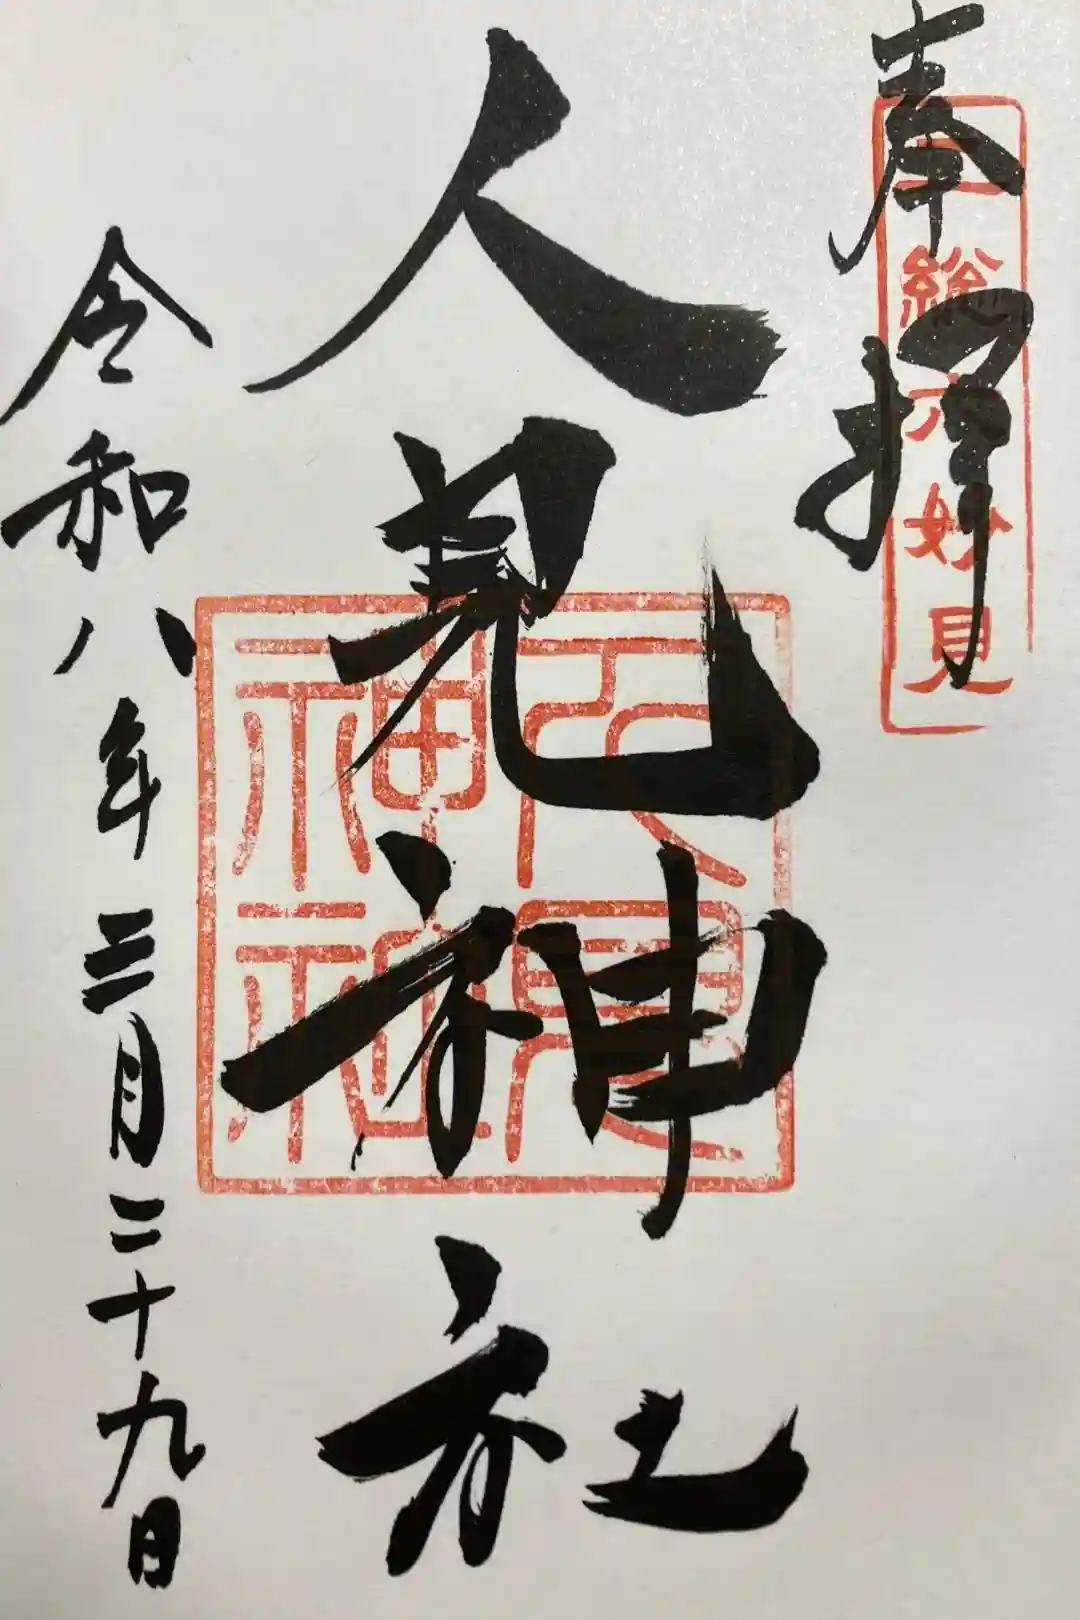 奉拝
上総六妙見
人見神社
人見神社
令和八年三月二十九日